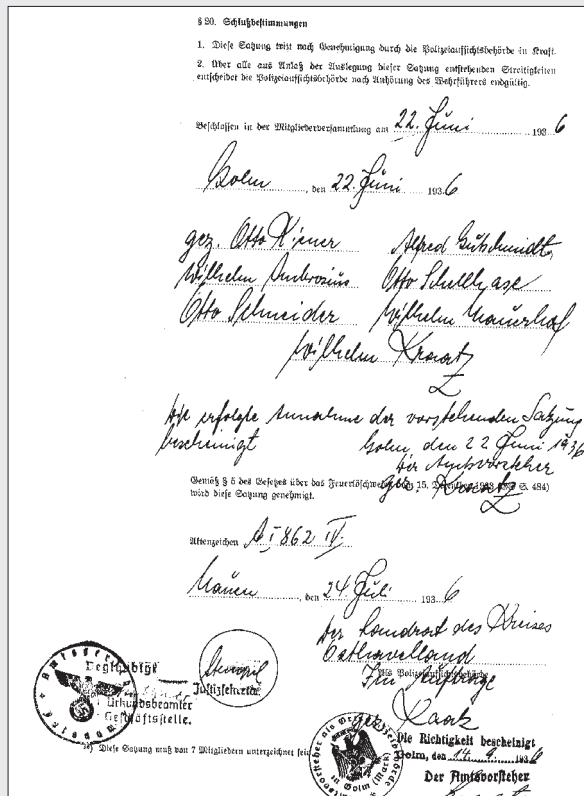 § 20. Schlußbestimmungen
1. Diese Satzung tritt nach Genehmigung durch die Polizeiaufsichtsbehörde in Kraft.
2. Über alle aus Anlaß der Auslegung dieser Satzung entstehenden Streitigkeiten
entscheidet die Polizeiaufsichtsbehörde nach Anhörung des Wehrführers endgültig.
Beschlossen in der Mitgliederversammlung am 22. Juni 1936
Golm, den 22. Juni 1936
gez. Otto Alfred Gutschmidt
Wilhelm Ambrosius Otto Schellhase
Otto Schneider Wilhelm Mauerhof
Wilhelm Kraatz
Die erfolgte Annahme der vorstehenden Satzung
bescheinigt Golm, den 22 Juni 1936
Der Amtsvorsteher
gez. Kraatz
Gemäß § 5 des Gesetzes über das 15. S. 484)
wird diese Satzung genehmigt.
Aktenzeichen A I 862 IV.
Nauen, den 24. Juli 1936
Der Landrat des Kreises
Osthavelland
Als Polizeiaufsichtsbehörde
Im Auftrage
gez.
Beglaubigt
Stempel
Justizsekretär
Urkundsbeamter
Geschäftsstelle.
*) Diese Satzung muß von 7 Mitgliedern unterzeichnet sein
Amtsvorsteher als Ortspolizeibehörde
in Golm (Mark)
Die Richtigkeit bescheinigt
Golm, den 14. 9. 1936
Der Amtsvorsteher